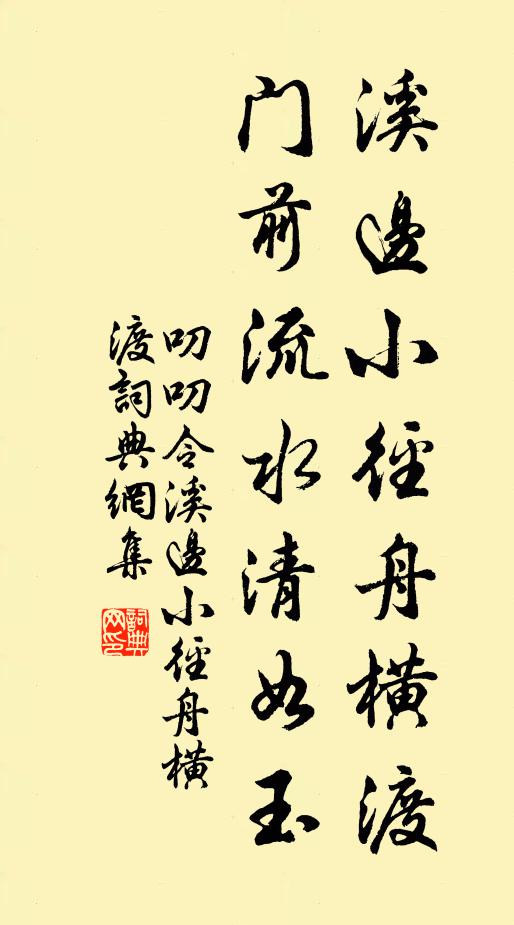 溪邊小徑舟橫渡
门前流水清如玉
叨叨令溪邊小徑舟橫
渡詞典網集
詞典
网印